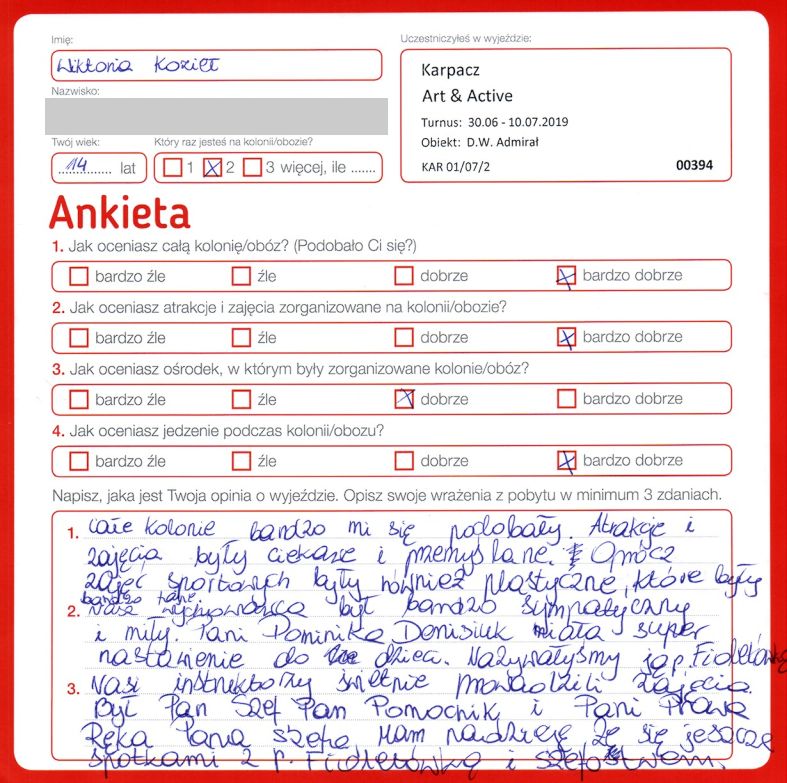 Imię:
Wiktoria Kozieł
Nazwisko:
Twój wiek:
14 lat
Który raz jesteś na kolonii/obozie?
1 2 3 więcej, ile .......
Uczestniczyłeś w wyjeździe:
Karpacz
Art & Active
Turnus: 30.06 - 10.07.2019
Obiekt: D.W. Admirał
KAR 01/07/2 00394
Ankieta
1. Jak oceniasz całą kolonię/obóz? (Podobało Ci się?)
bardzo źle źle dobrze bardzo dobrze
2. Jak oceniasz atrakcje i zajęcia zorganizowane na kolonii/obozie?
bardzo źle źle dobrze bardzo dobrze
3. Jak oceniasz ośrodek, w którym były zorganizowane kolonie/obóz?
bardzo źle źle dobrze bardzo dobrze
4. Jak oceniasz jedzenie podczas kolonii/obozu?
bardzo źle źle dobrze bardzo dobrze
Napisz, jaka jest Twoja opinia o wyjeździe. Opisz swoje wrażenia z pobytu w minimum 3 zdaniach.
1. Całe kolonie bardzo mi się podobały. Atrakcje i
zajęcia były ciekawe i przemyślane. Oprócz
zajęć sportowych były również plastyczne, które były
bardzo fajne.
2. Nasz wychowawca był bardzo sympatyczny
i miły. Pani Dominika Denisiuk miała super
nastawienie do dzieci. Nazywałyśmy ją p. Fioletówką
3. Nasi instruktorzy świetnie prowadzili zajęcia.
Był Pan Szef Pan Pomocnik i Pani Prawa
Ręka Pana szefa Mam nadzieję że się jeszcze
spotkami z p. Fioletówką i szefostwem.